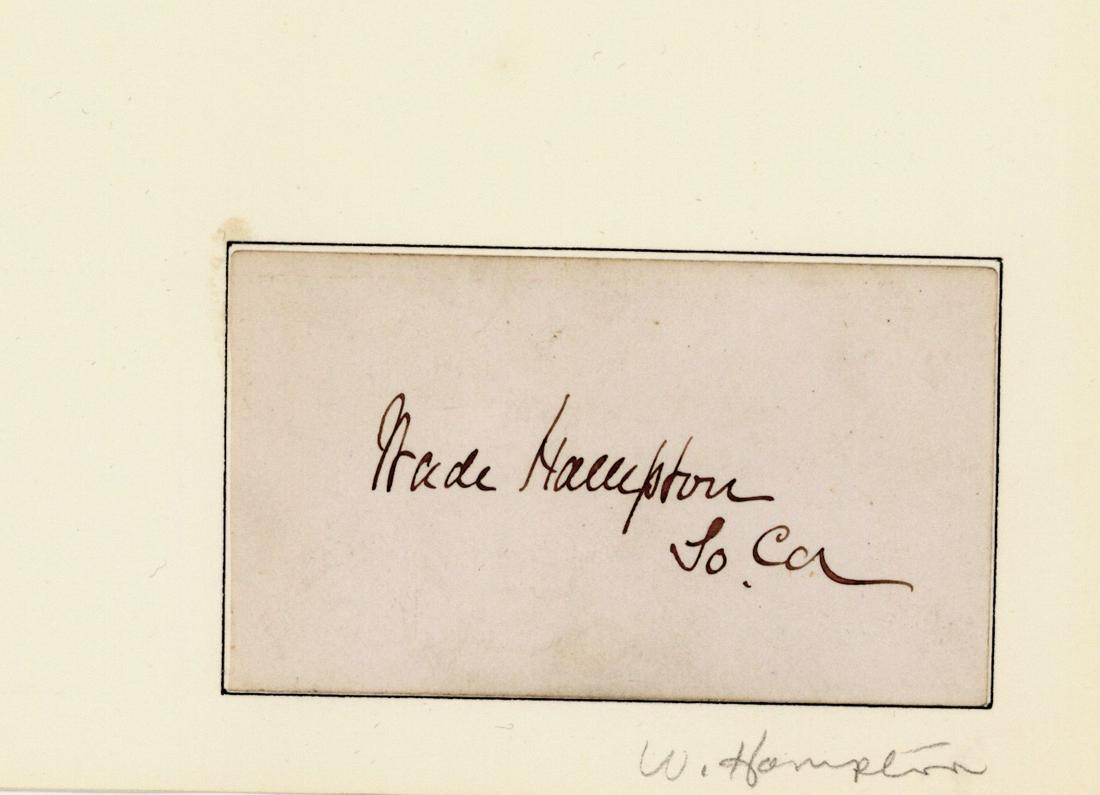 Wade Hampton
So. Ca
W. Hampton